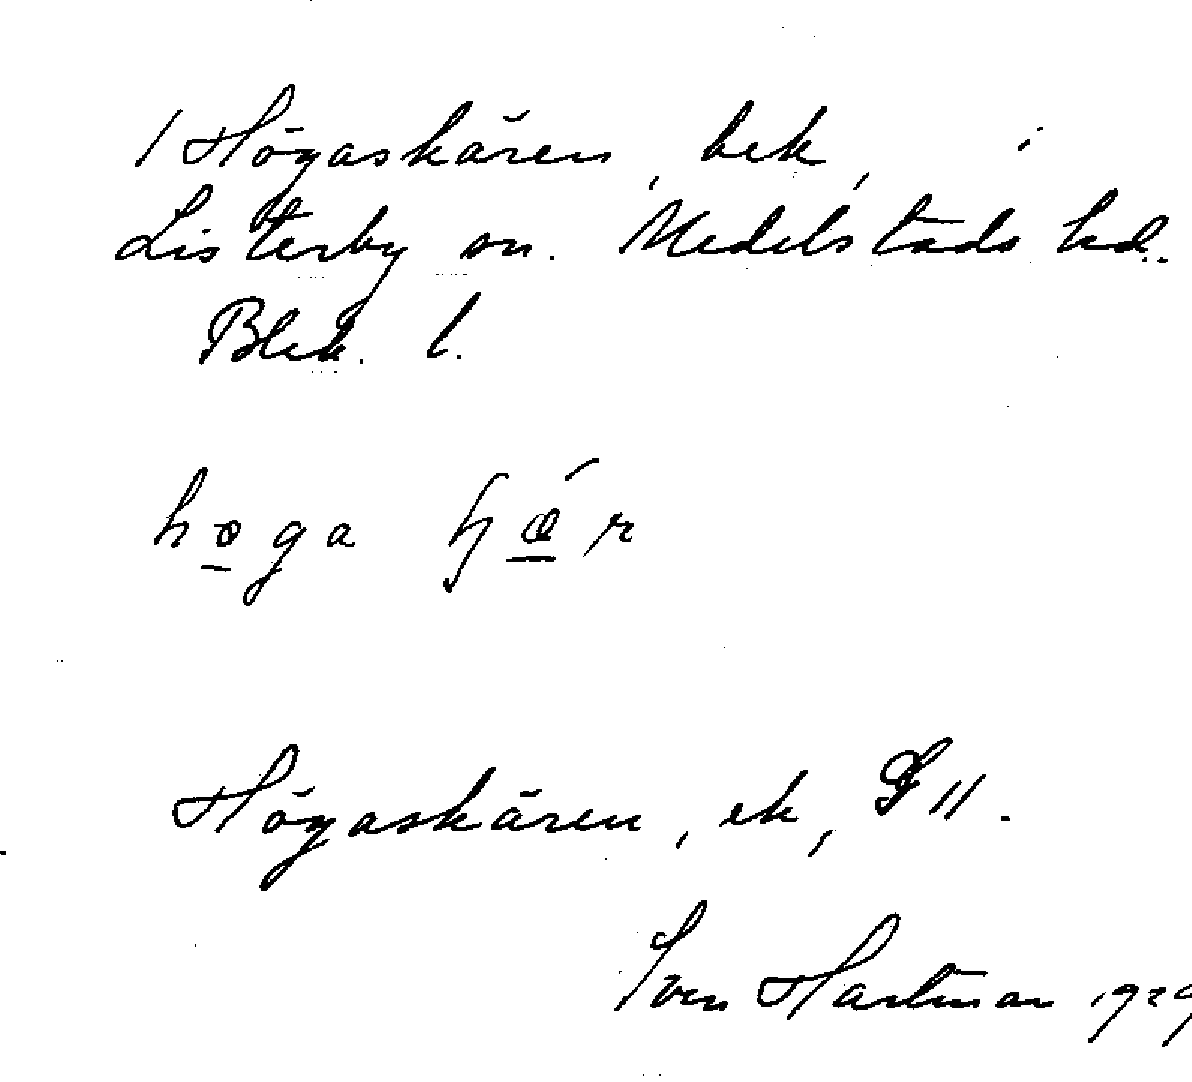 / Högaskären, bek, i
Listerby sn. Medelstads hd.
Blek. l.
høga ɧǿr
Högaskären, ek, S 11.
Sven Hartman 1929